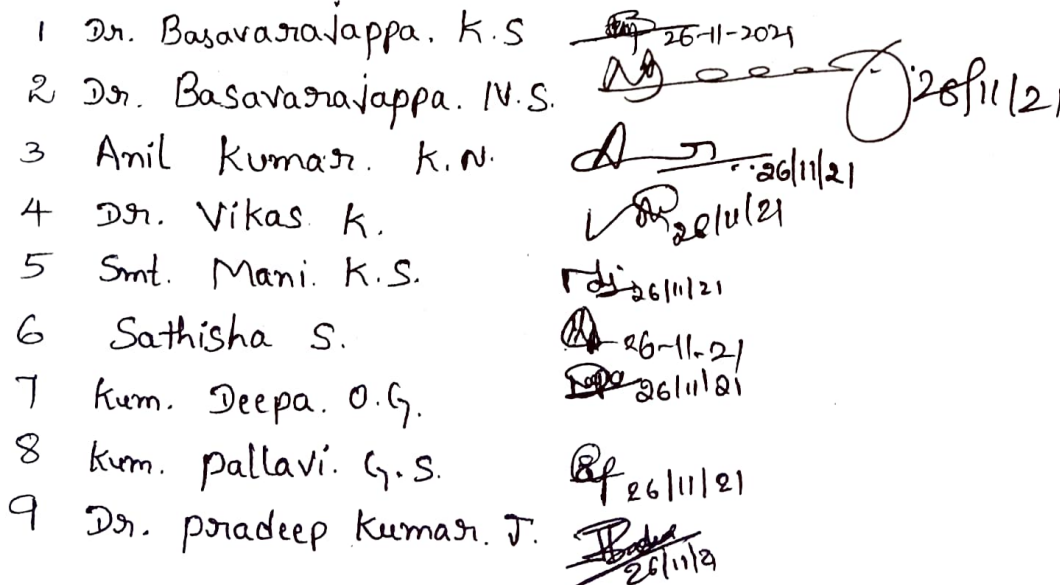 1 Dr. Basavarajappa. K.S 26-11-2021
2 Dr. Basavarajappa. N.S. 26/11/21
3 Anil Kumar. K.N. 26/11/21
4 Dr. Vikas K. 26/11/21
5 Smt. Mani. K.S. 26/11/21
6 Sathisha S. 26-11-21
7 Kum. Deepa. O.G. 26/11/21
8 Kum. Pallavi. G.S. 26/11/21
9 Dr. Pradeep Kumar. J. 26/11/21